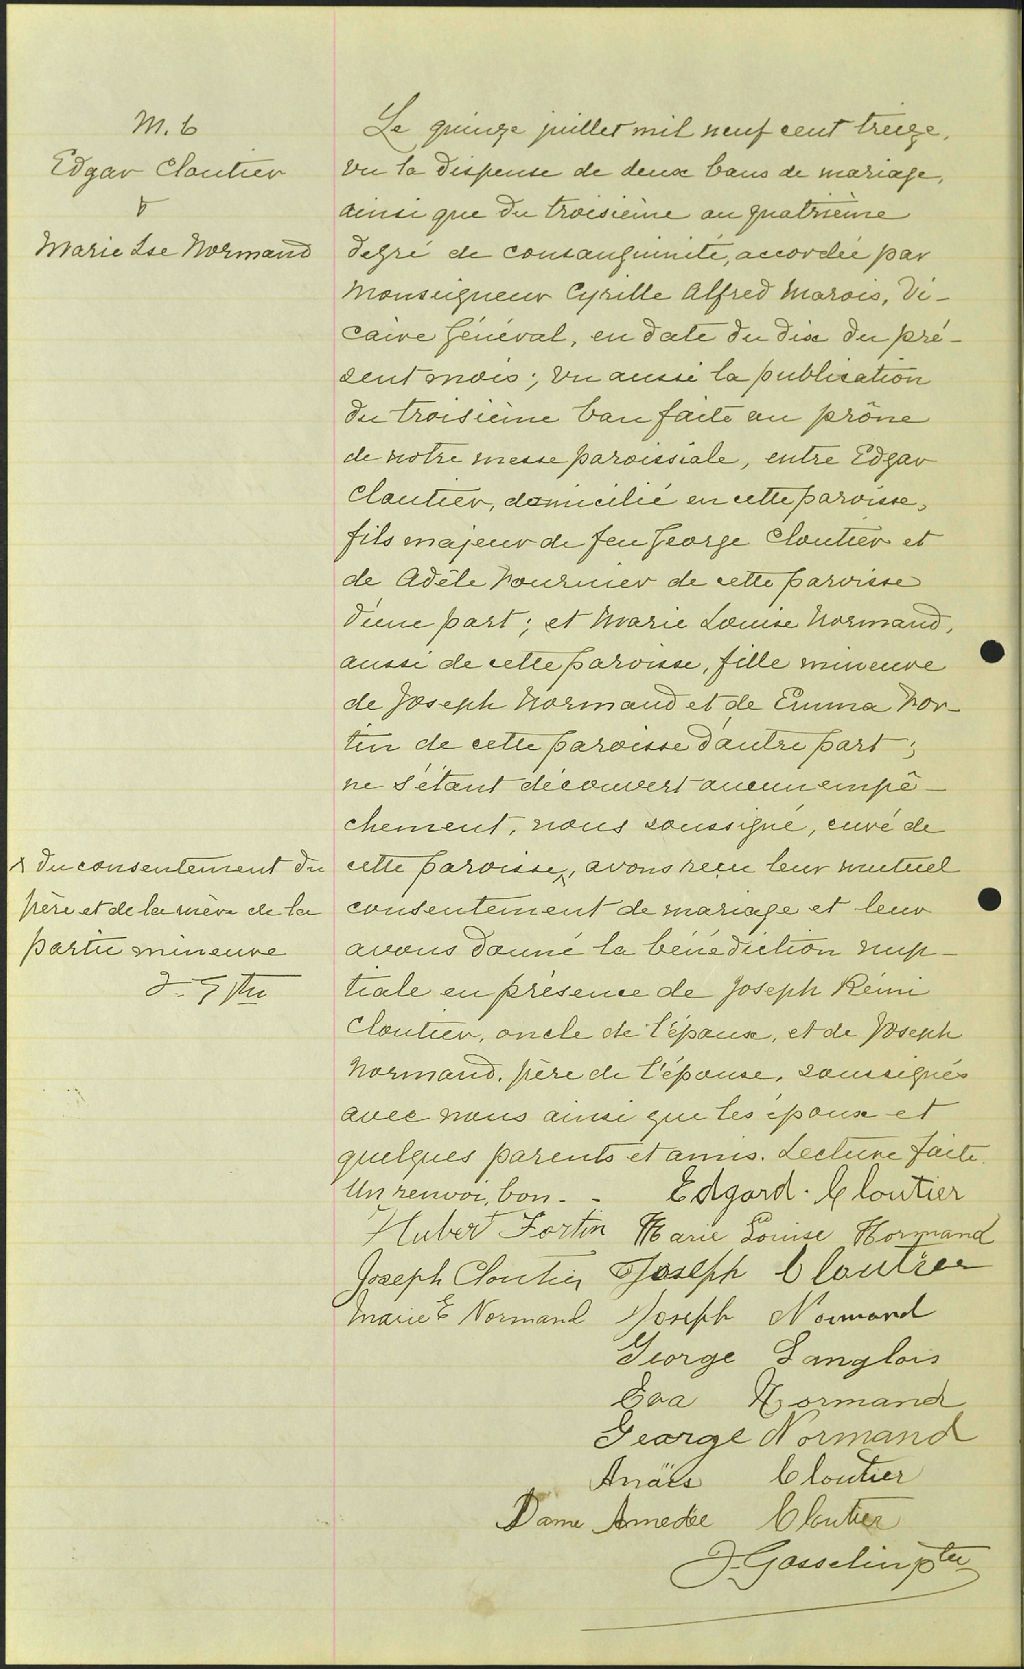 M. 6
Edgar Cloutier
&
Marie Lse Normand
Le quinze juillet mil neuf cent treize,
vu la dispense de deux bans de mariage,
ainsi que du troisième au quatrième
degré de consanguinité, accordée par
Monseigneur Cyrille Alfred Marois, Vi-
caire Général, en date du dix du pré-
sent mois; vu aussi la publication
du troisième ban faite au prône
de notre messe paroissiale, entre Edgar
Cloutier, domicilié en cette paroisse,
fils majeur de feu George Cloutier et
de Adèle Fournier de cette paroisse
d'une part; et Marie Louise Normand,
aussi de cette paroisse, fille mineure
de Joseph Normand et de Emma For-
tin de cette paroisse d'autre part;
ne s'étant découvert aucun empê-
chement, nous soussigné, curé de
cette paroisse, avons reçu leur mutuel
consentement de mariage et leur
avons donné la bénédiction nup-
tiale en présence de Joseph Rémi
Cloutier, oncle de l'époux, et de Joseph
Normand, père de l'épouse, soussignés
avec nous ainsi que les époux et
quelques parents et amis. Lecture faite.
Un renvoi, bon. -
x du consentement du
père et de la mère de la
partie mineure
J. G Ptre
Edgard. Cloutier
Hubert Fortin Marie Louise Normand
Joseph Cloutier Joseph Cloutier
Marie E Normand Joseph Normand
George Langlois
Eva Normand
George Normand
Anaïs Cloutier
Dame Amedée Cloutier
J. Gosselin ptre